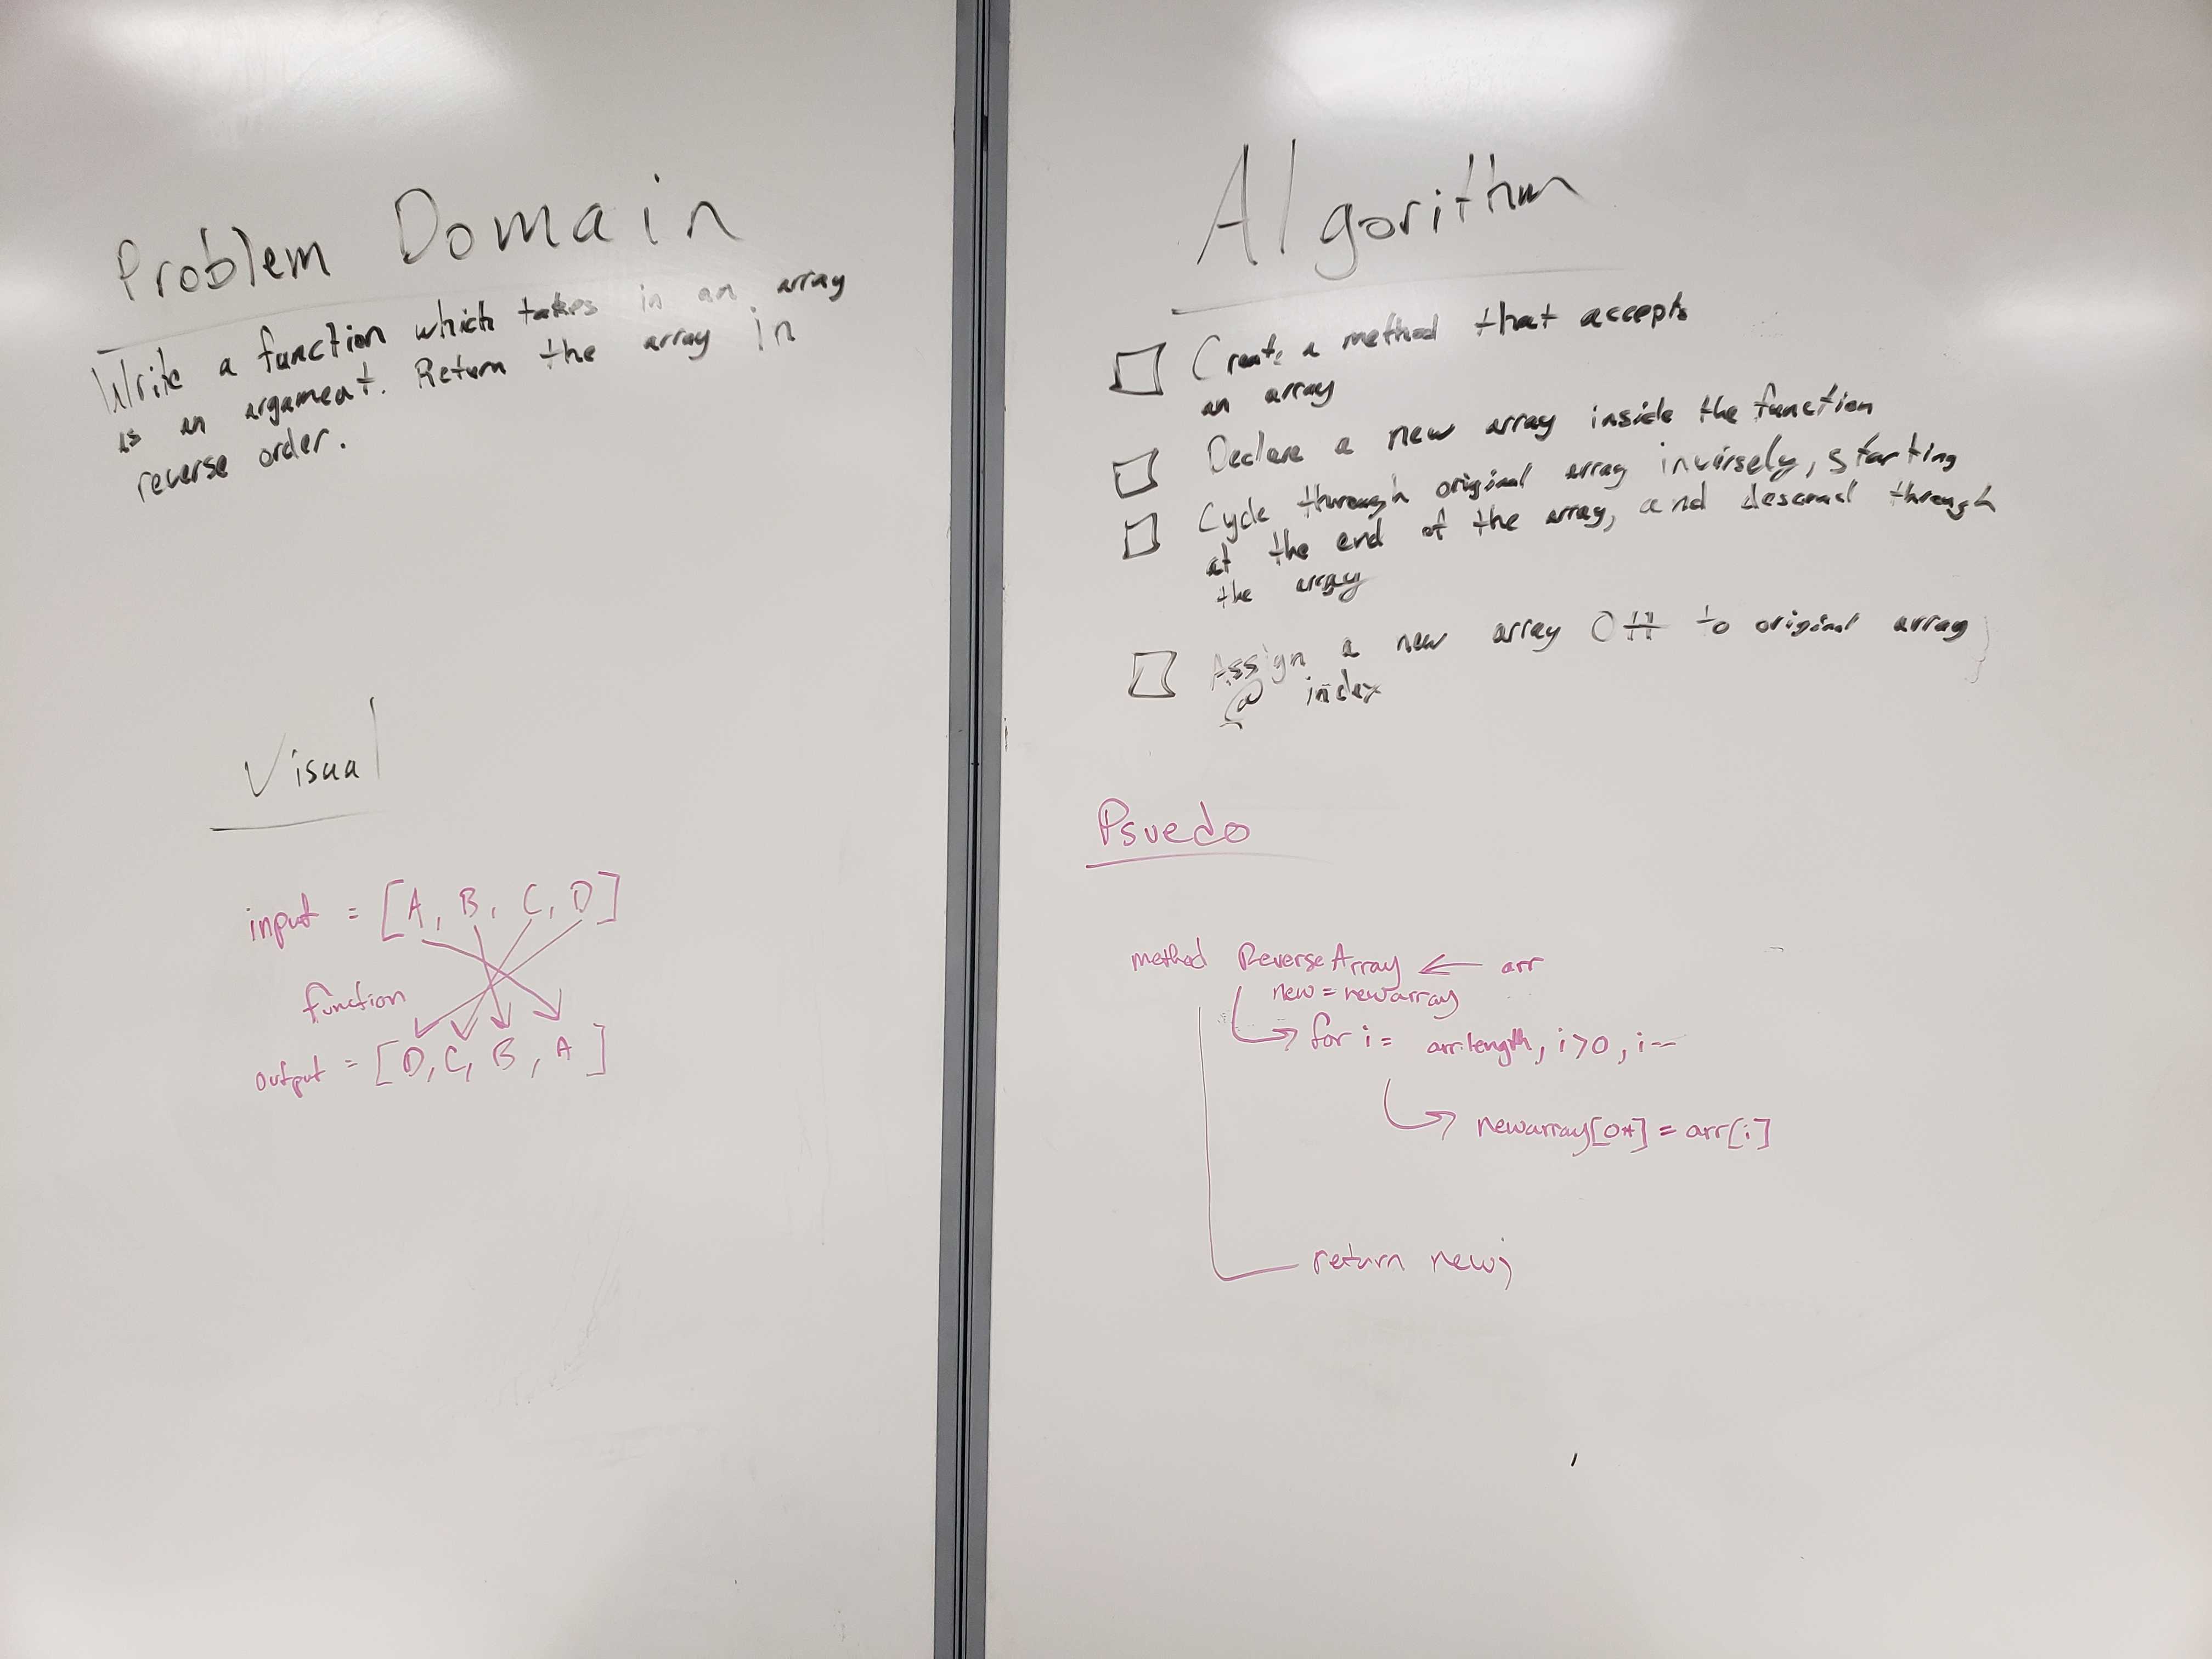 Problem Domain
Write a function which takes in an array
is an argument. Return the array in
reverse order.
Visual
input = [A, B, C, D]
function
output = [D, C, B, A]
Algorithm
Create a method that accepts
an array
Declare a new array inside the function
Cycle through original array inversely, starting
at the end of the array, and descend through
the array
Assign a new array 0++ to original array
@ index
Psuedo
method ReverseArray ← arr
new = newarray
for i = arr.length, i>0, i--
newarray[0+] = arr[i]
return new;